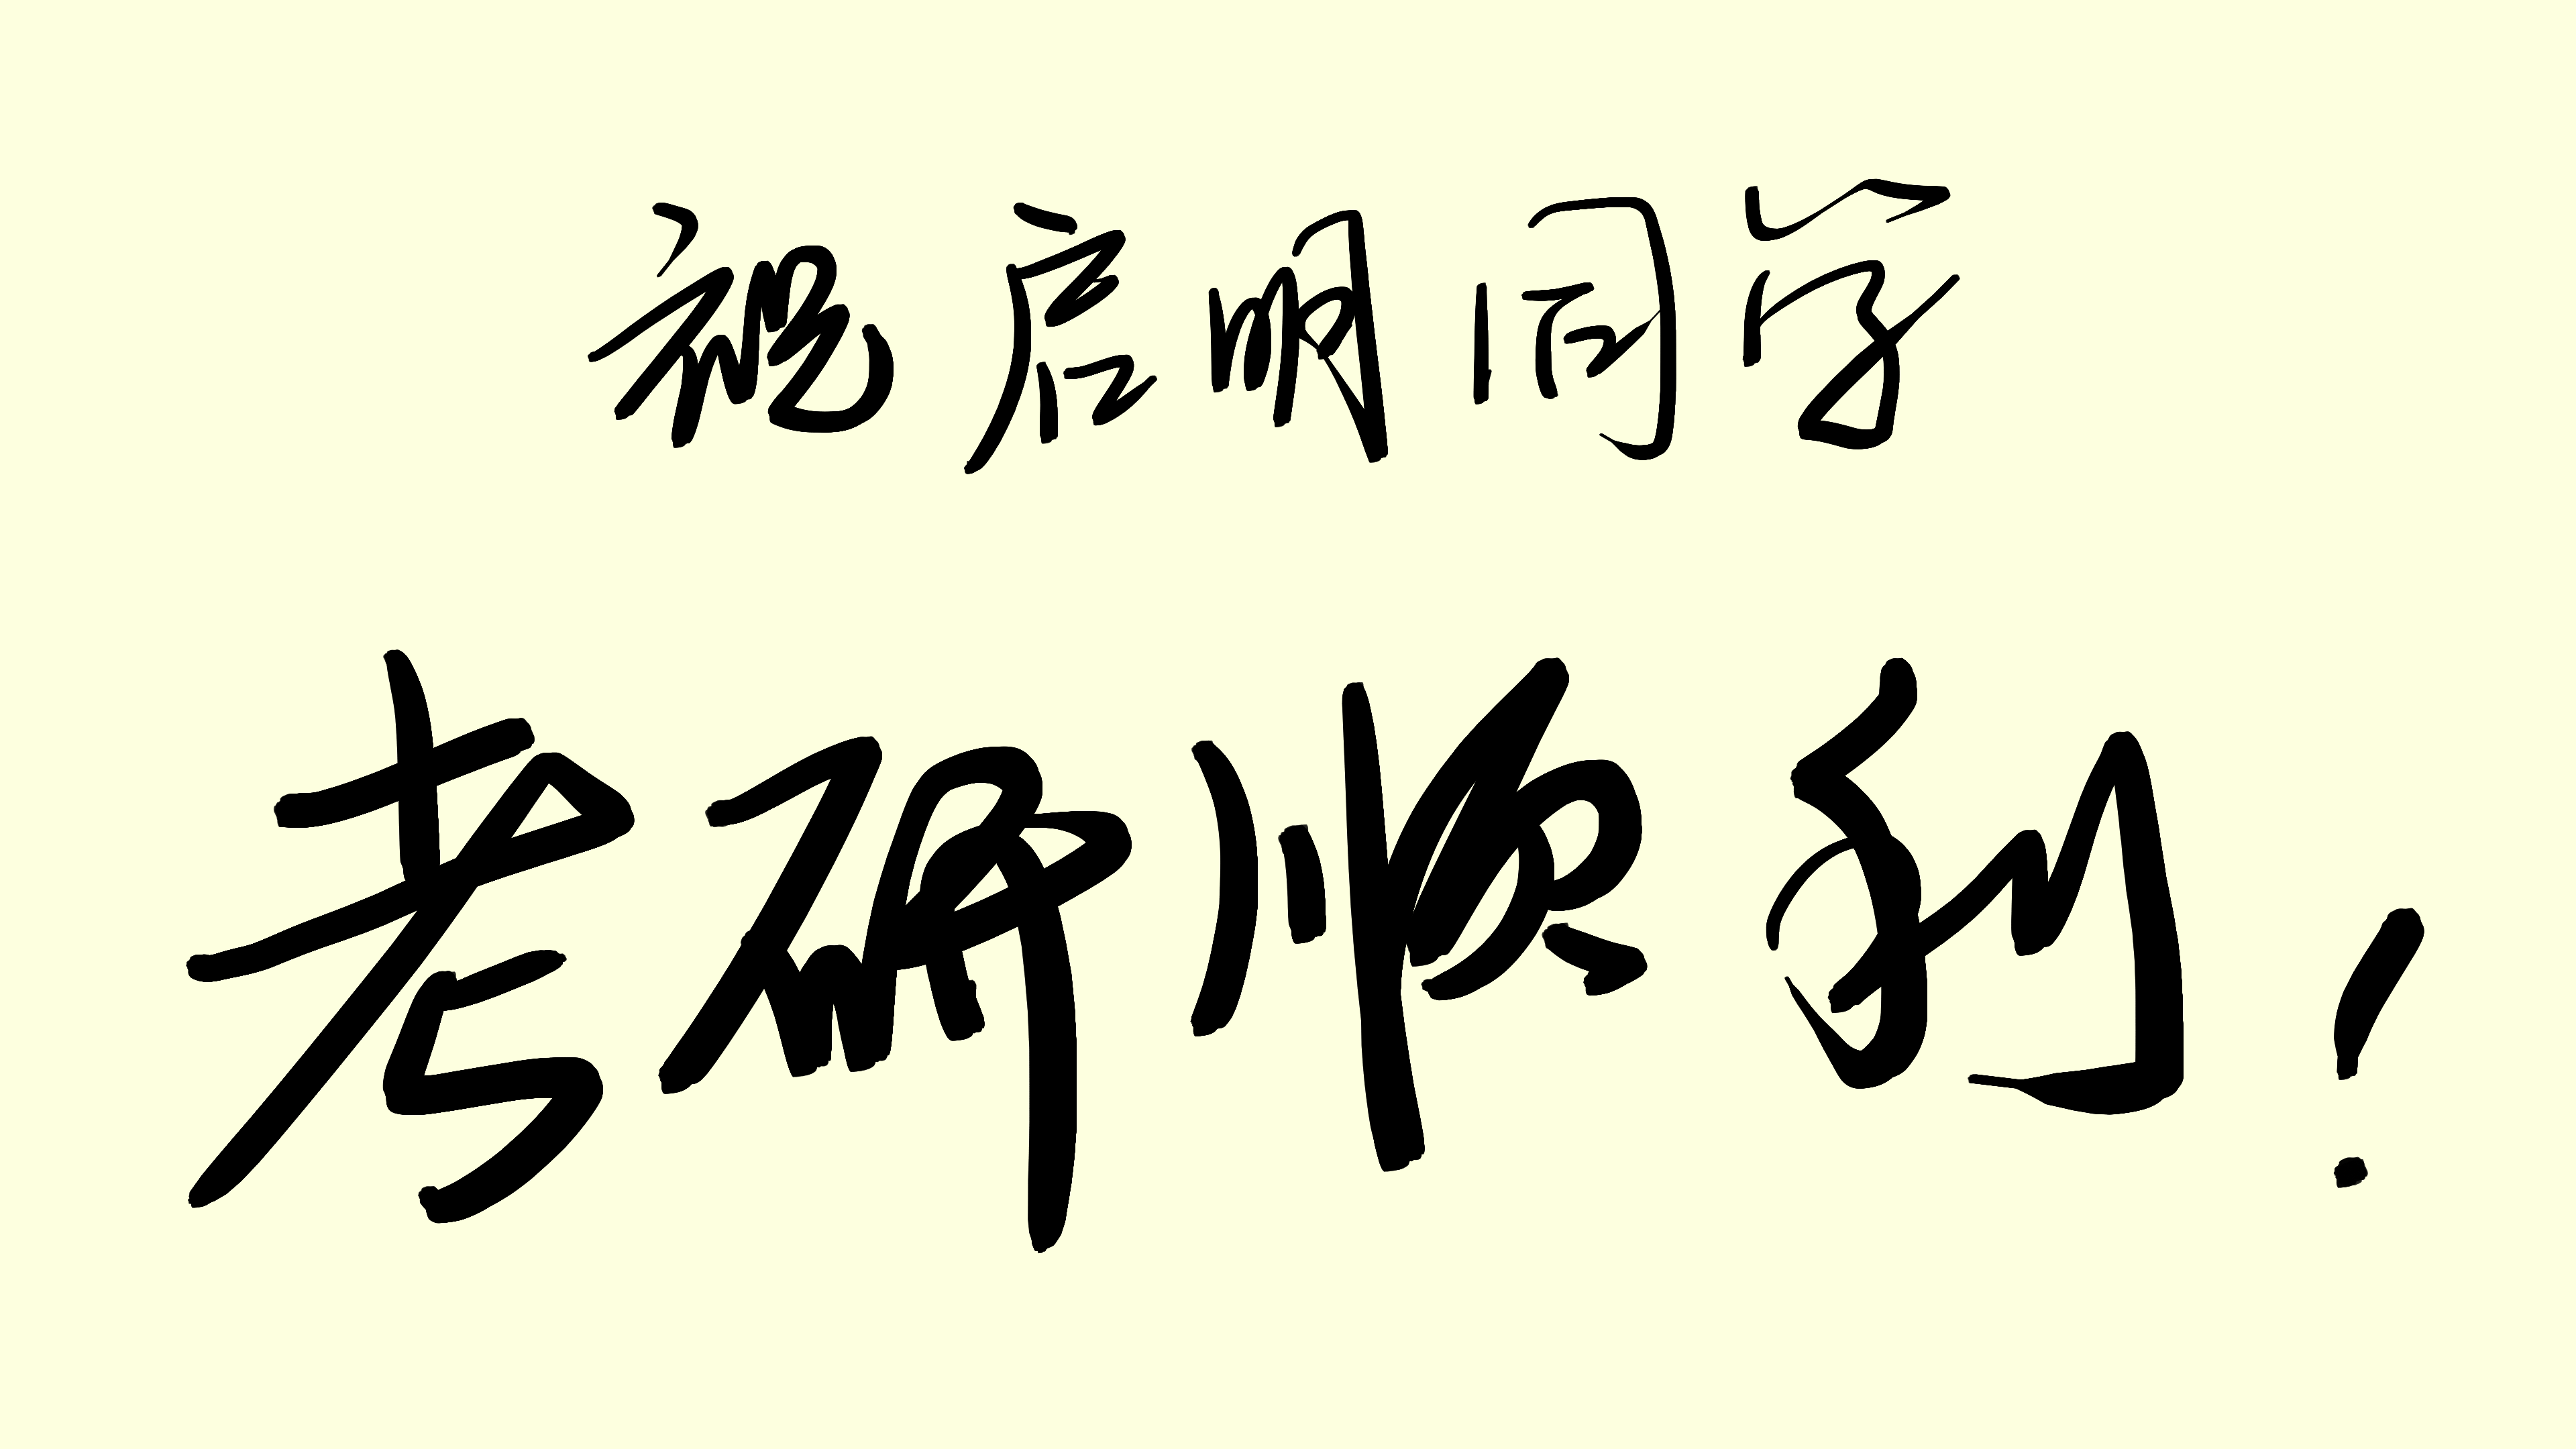 祝启明同学
考研顺利！